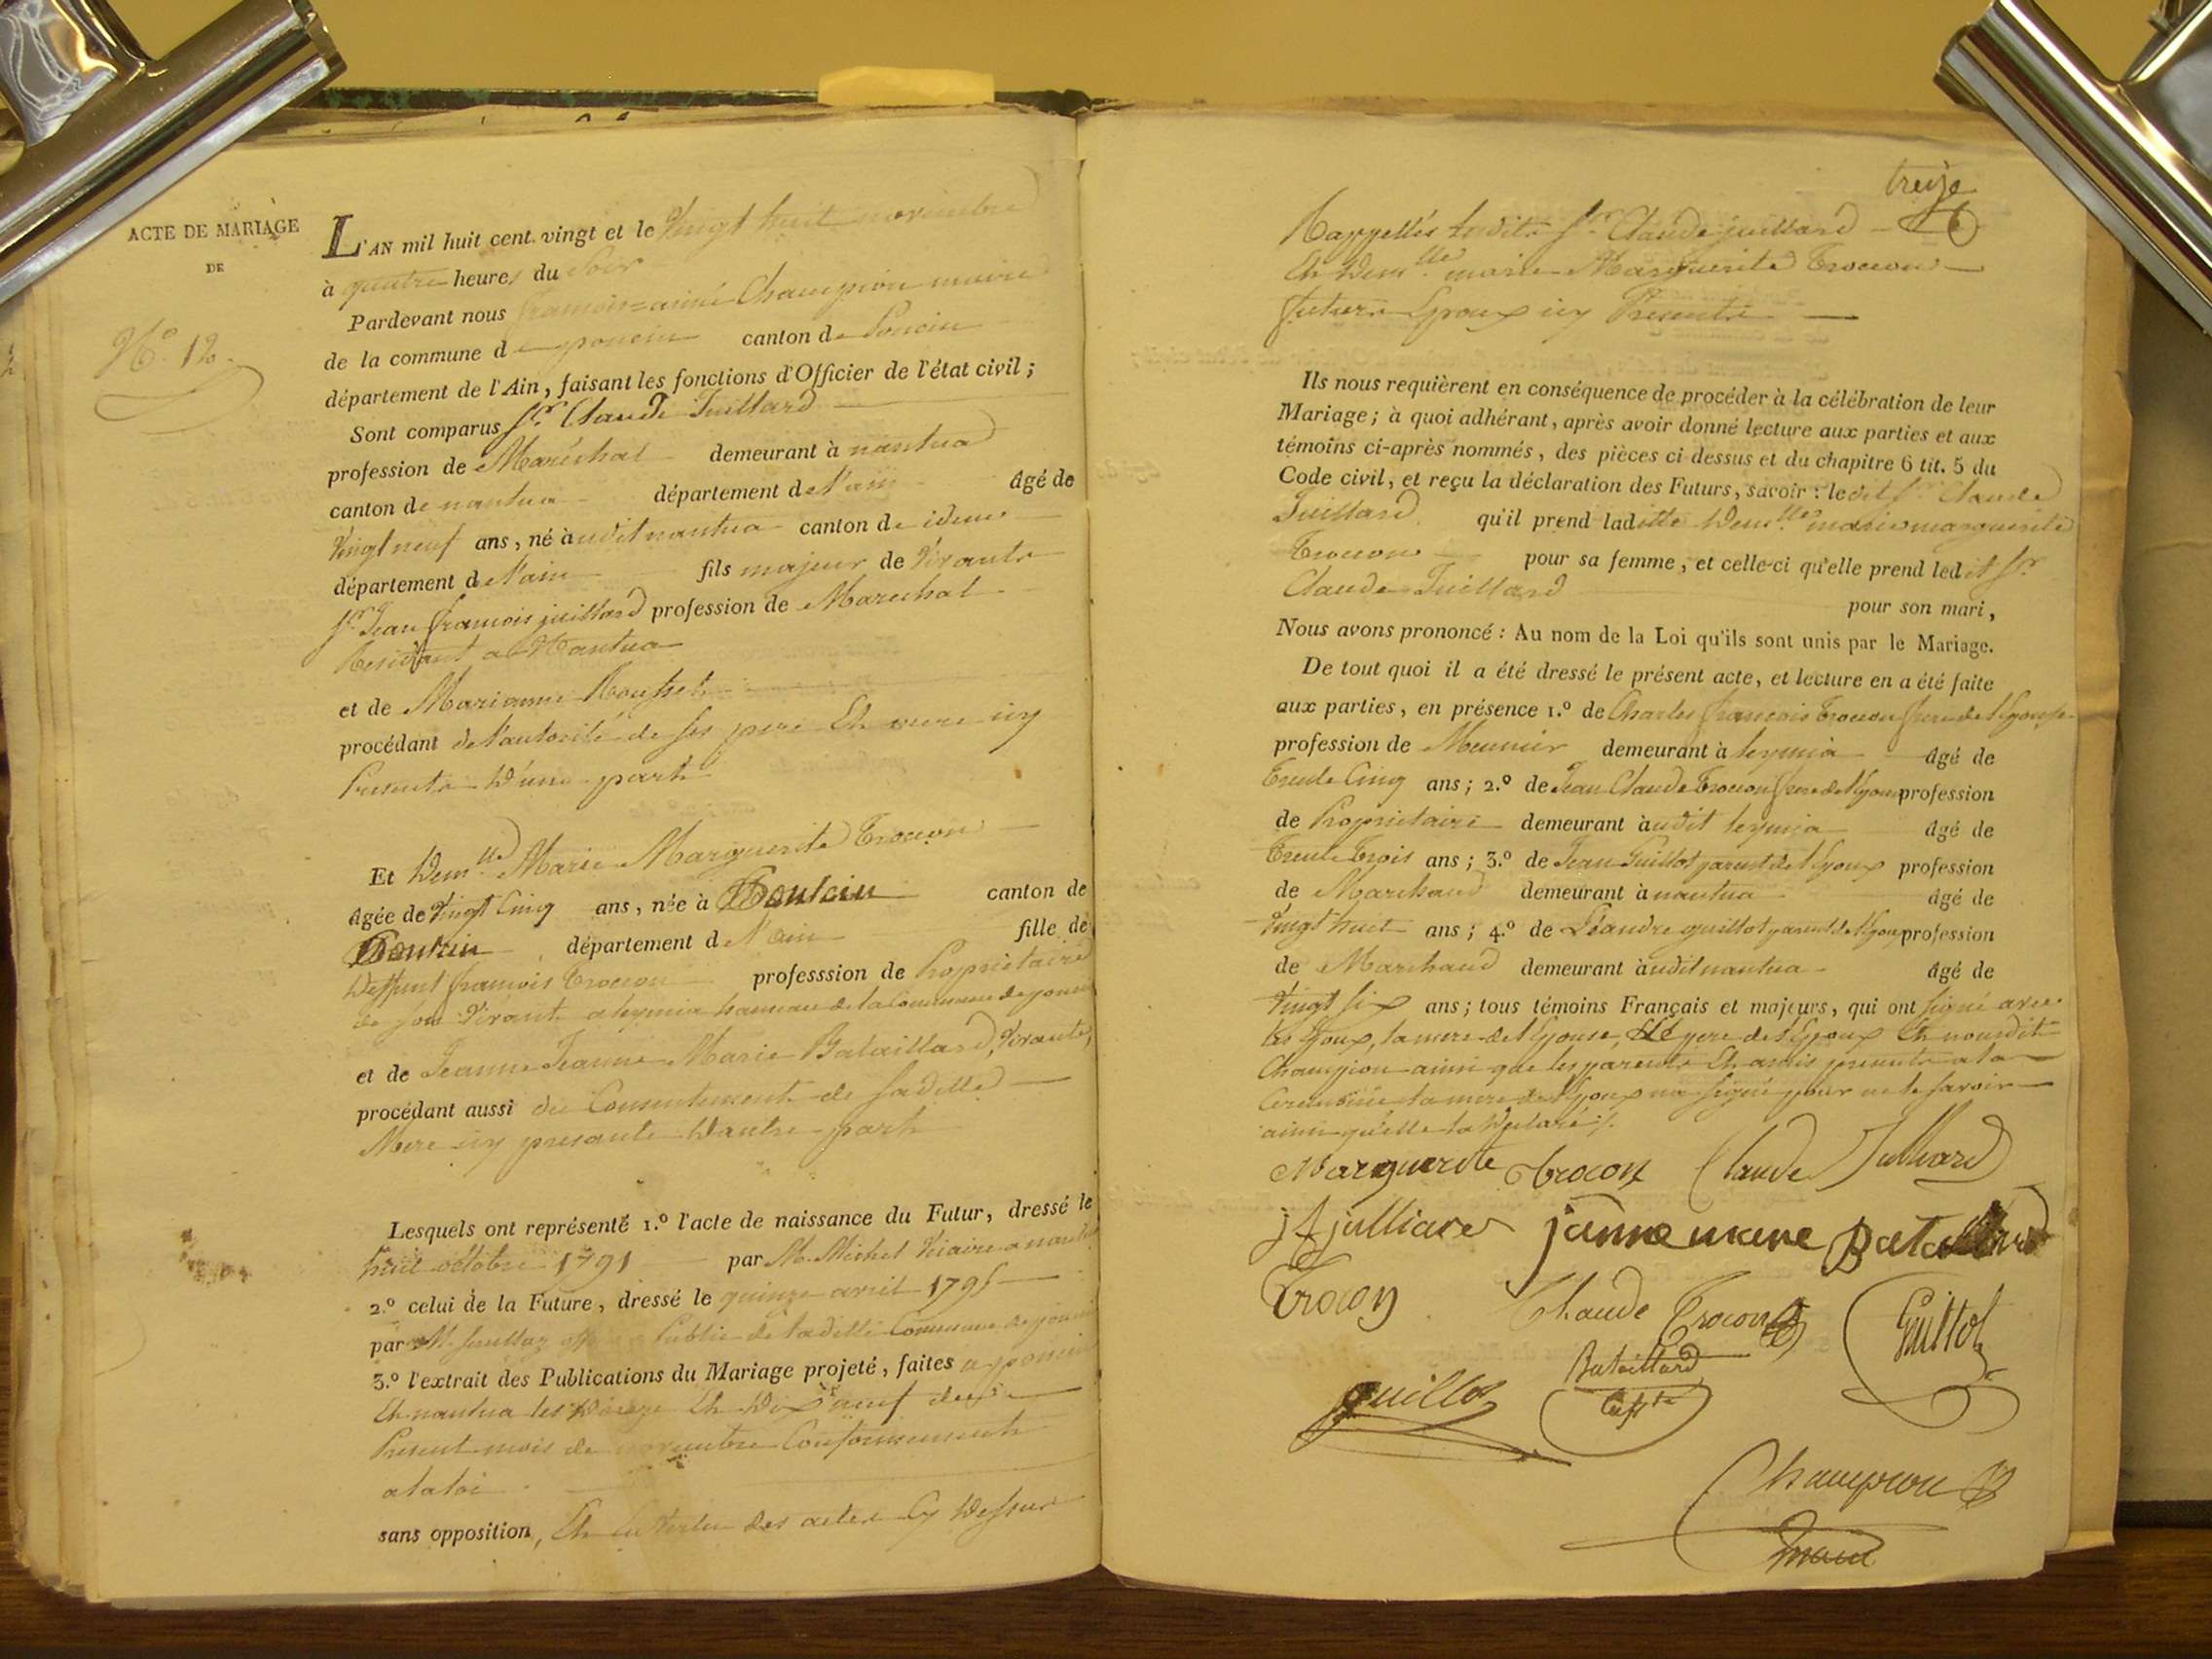 ACTE DE MARIAGE
DE
N.º 12
L'AN mil huit cent vingt et le Vingt huit novembre
à quatre heures du Soir
Pardevant nous françois=aimé Champion maire
de la commune de poncin canton de Poncin
département de l'Ain, faisant les fonctions d'Officier de l'état civil;
Sont comparus Sr. Claude Juillard
profession de Maréchal demeurant à nantua
canton de nantua département de l'ain âgé de
Vingt neuf ans, né audit nantua canton de idem
département de l'ain fils majeur de Vivants
Sr. Jean françois juillard profession de Marechal
Residant a Nantua
et de Marianne Rousset
procédant de l'autorité de ses pere Et mere icy
Presents D'une part
Et Demlle Marie Marguerite Trocon
âgée de Vingt Cinq ans, née à Poncin canton de
Poncin département de l'ain fille de
Deffunt françois Trocon professsion de Propriétaire
de son Vivant a leymia hameau de la Commune de poncin
et de Jeanne Jeanne Marie Bataillard, Vivante,
procédant aussi du Consentement de saditte
Mere icy presante D'autre part
Lesquels ont représenté 1.º l'acte de naissance du Futur, dressé le
huit octobre 1791 par M. Michel Vicaire a nantua
2.º celui de la Future, dressé le quinze avril 1795
par M. public de laditte Commune de poncin
3.º l'extrait des Publications du Mariage projeté, faites a poncin
Et nantua les Et Dix neuf du
Present mois de novembre Conformement
a la loi
sans opposition, Et en Vertu des actes Cy Dessus
treize
Rappellés Lesdits Sr. Claude juillard
Et Demlle marie Marguerite Trocon
futurs Epoux icy Presents
Ils nous requièrent en conséquence de procéder à la célébration de leur
Mariage; à quoi adhérant, après avoir donné lecture aux parties et aux
témoins ci-après nommés, des pièces ci dessus et du chapitre 6 tit. 5 du
Code civil, et reçu la déclaration des Futurs, savoir: ledit Sr. Claude
Juillard qu'il prend laditte Demlle marie marguerite
Trocon pour sa femme, et celle-ci qu'elle prend ledit Sr.
Claude Juillard
pour son mari,
Nous avons prononcé: Au nom de la Loi qu'ils sont unis par le Mariage.
De tout quoi il a été dressé le présent acte, et lecture en a été faite
aux parties, en présence 1.º de Charles françois Trocon frere de l'Epouse
profession de Meunier demeurant à leymia âgé de
Trente Cinq ans; 2.º de Jean Claude Trocon frere de l'Epouse profession
de Propriétaire demeurant audit leymia âgé de
Trente Trois ans; 3.º de Jean Guillot parent de l'Epoux profession
de Marchand demeurant à nantua âgé de
Vingt huit ans; 4.º de Léandre guillot parent de l'Epoux profession
de Marchand demeurant audit nantua âgé de
Vingt Six ans; tous témoins Français et majeurs, qui ont signé avec
les Epoux, la mere de l'Epouse, Le pere de l'Epoux Et nous dit
Champion ainsi que les parents Et amis presents a la
Ceremonie la mere de l'Epoux na signé pour ne le savoir
ainsi qu'elle la Déclaré /.
Marguerite trocon Claude Julliard
jf julliard janne marie Bataillard
Trocon Claude Trocon Guillot
guillot Bataillard
Champion
maire